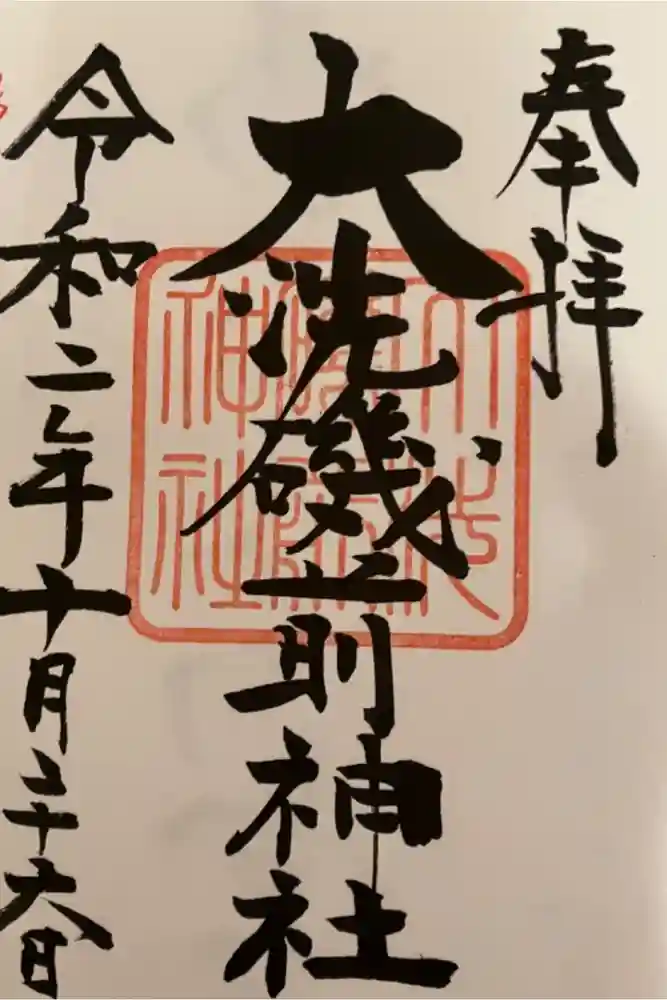 奉拝
大洗磯前神社
令和二年十月二十六日
神社